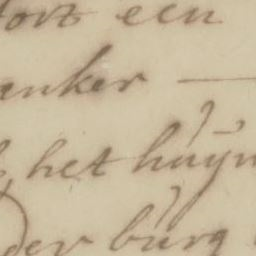 een
anker —
het huÿn
der burg